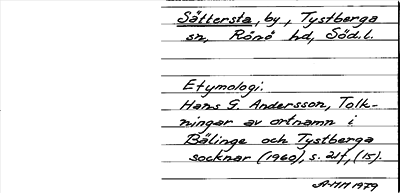 Sättersta, by, Tystberga
sn, Rönö hd, Söd.l.
Etymologi:
Hans G. Andersson, Tolk-
ningar av ortnamn i
Bälinge och Tystberga
socknar (1960), s. 21f, (15).
A-MM 1979